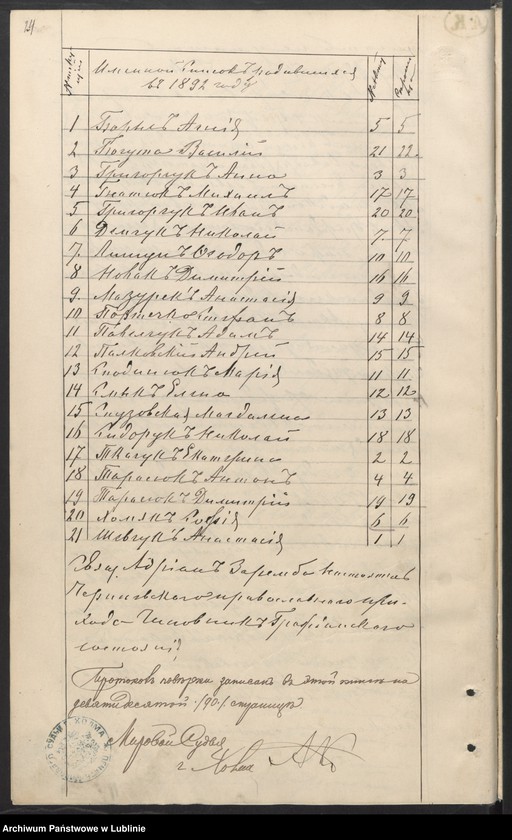 Именной Списокъ родившихся
въ 1892 году
1 Борысъ Анна 5 5
2 Богута Василій 21 22
3 Григорчукъ Анна 3 3
4 Гнатюкъ Михаилъ 17 17
5 Григорчукъ Иванъ 20 20
6 Демчукъ Николай 7. 7
7. Лищукъ Ѳеодоръ 10 10
8 Новакъ Димитрій 16 16
9. Мазурекъ Анастасія 9 9
10 Стефанъ 8 8
11 Павелчукъ Адамъ 14 14
12 Палковскій Андрей 15 15
13 Марія 11 11
14 Елена 12 12
15 Магдалина 13 13
16 Сидорукъ Николай 18 18
17 Ткачукъ Екатерина 2 2
18 Тарасюкъ Антонъ 4 4
19 Тарасюкъ Димитрій 19 19
20 Хомякъ Софія 6 6
21 Шевчукъ Анастасія 1 1
Свящ. Адріанъ Заремба Настоятель
православнаго при-
хода Чиновникъ Гражданскаго
состоянія
Протоколъ повѣрки записанъ въ этой книгѣ на
девятидесятой (90) страницѣ
Мировой Судья
г. Холма
Archiwum Państwowe w Lublinie